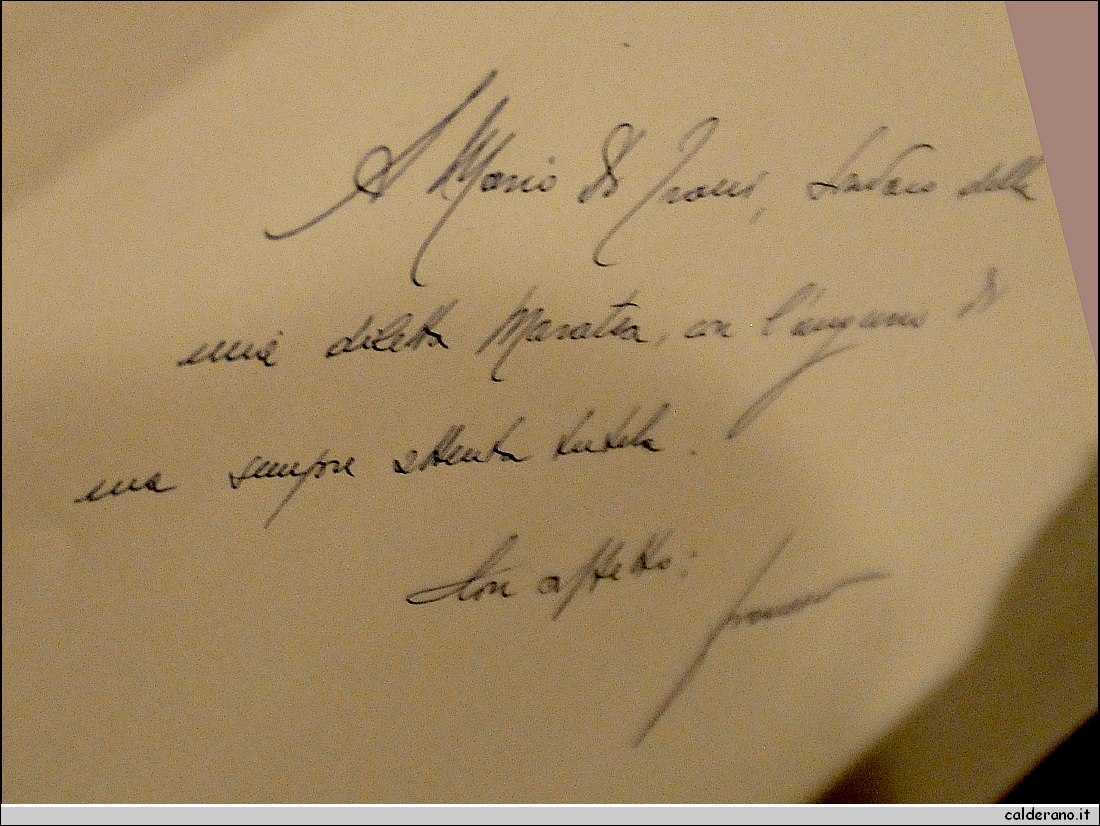 A Mario Di Trani, Sindaco della
mia diletta Maratea, con l'augurio di
una sempre attenta tutela.
Con affetto:
calderano.it